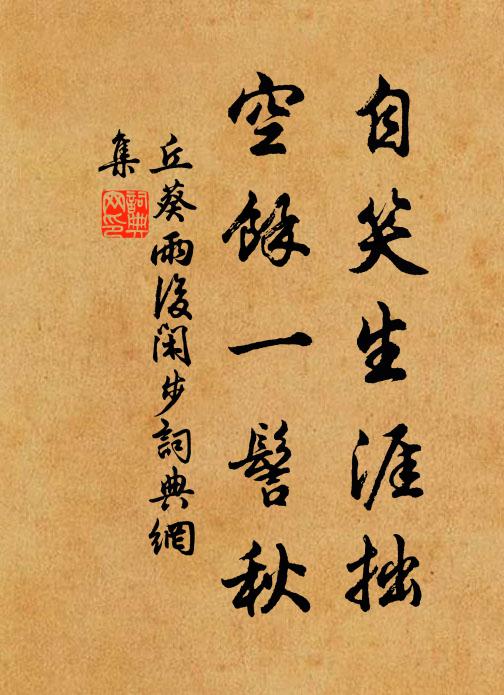 自笑生涯拙
空餘一髻秋
丘葵雨後閑步詞典網
集
詞典
网印